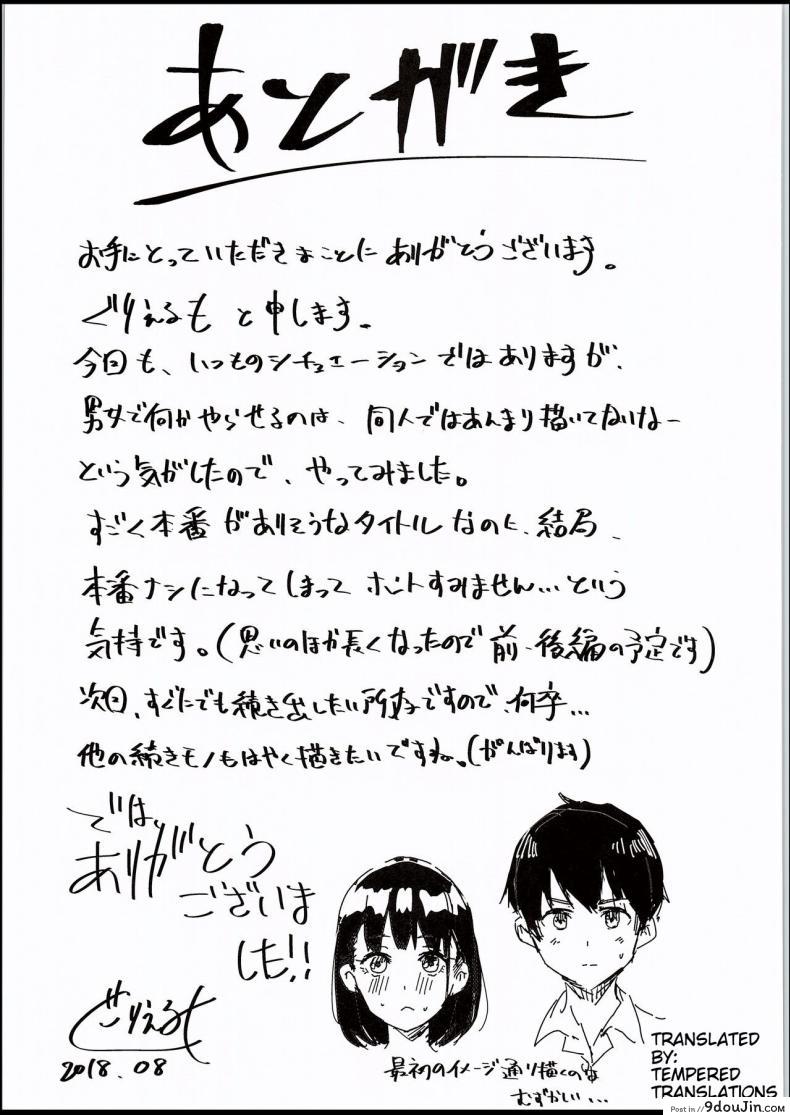 あとがき
お手にとっていただきまことにありがとうございます。
ぐりえるもと申します。
今回も、いつものシチュエーションではありますが、
男女で何かやらせるのは、同人ではあんまり描いてないなー
という気がしたので、やってみました。
すごく本番がありそうなタイトルなのに、結局、
本番ナシになってしまってホントすみません…という
気持です。(思いのほか長くなったので前・後編の予定です)
次回、すぐにでも続き出したい所存ですので、何卒…
他の続きモノもはやく描きたいですね。(がんばります)
では、
ありがとう
ございま
した!!
ぐりえるも
2018.08
最初のイメージ通り描くのは
むずかしい…
TRANSLATED
BY:
TEMPERED
TRANSLATIONS
Post in // 9douJin.com